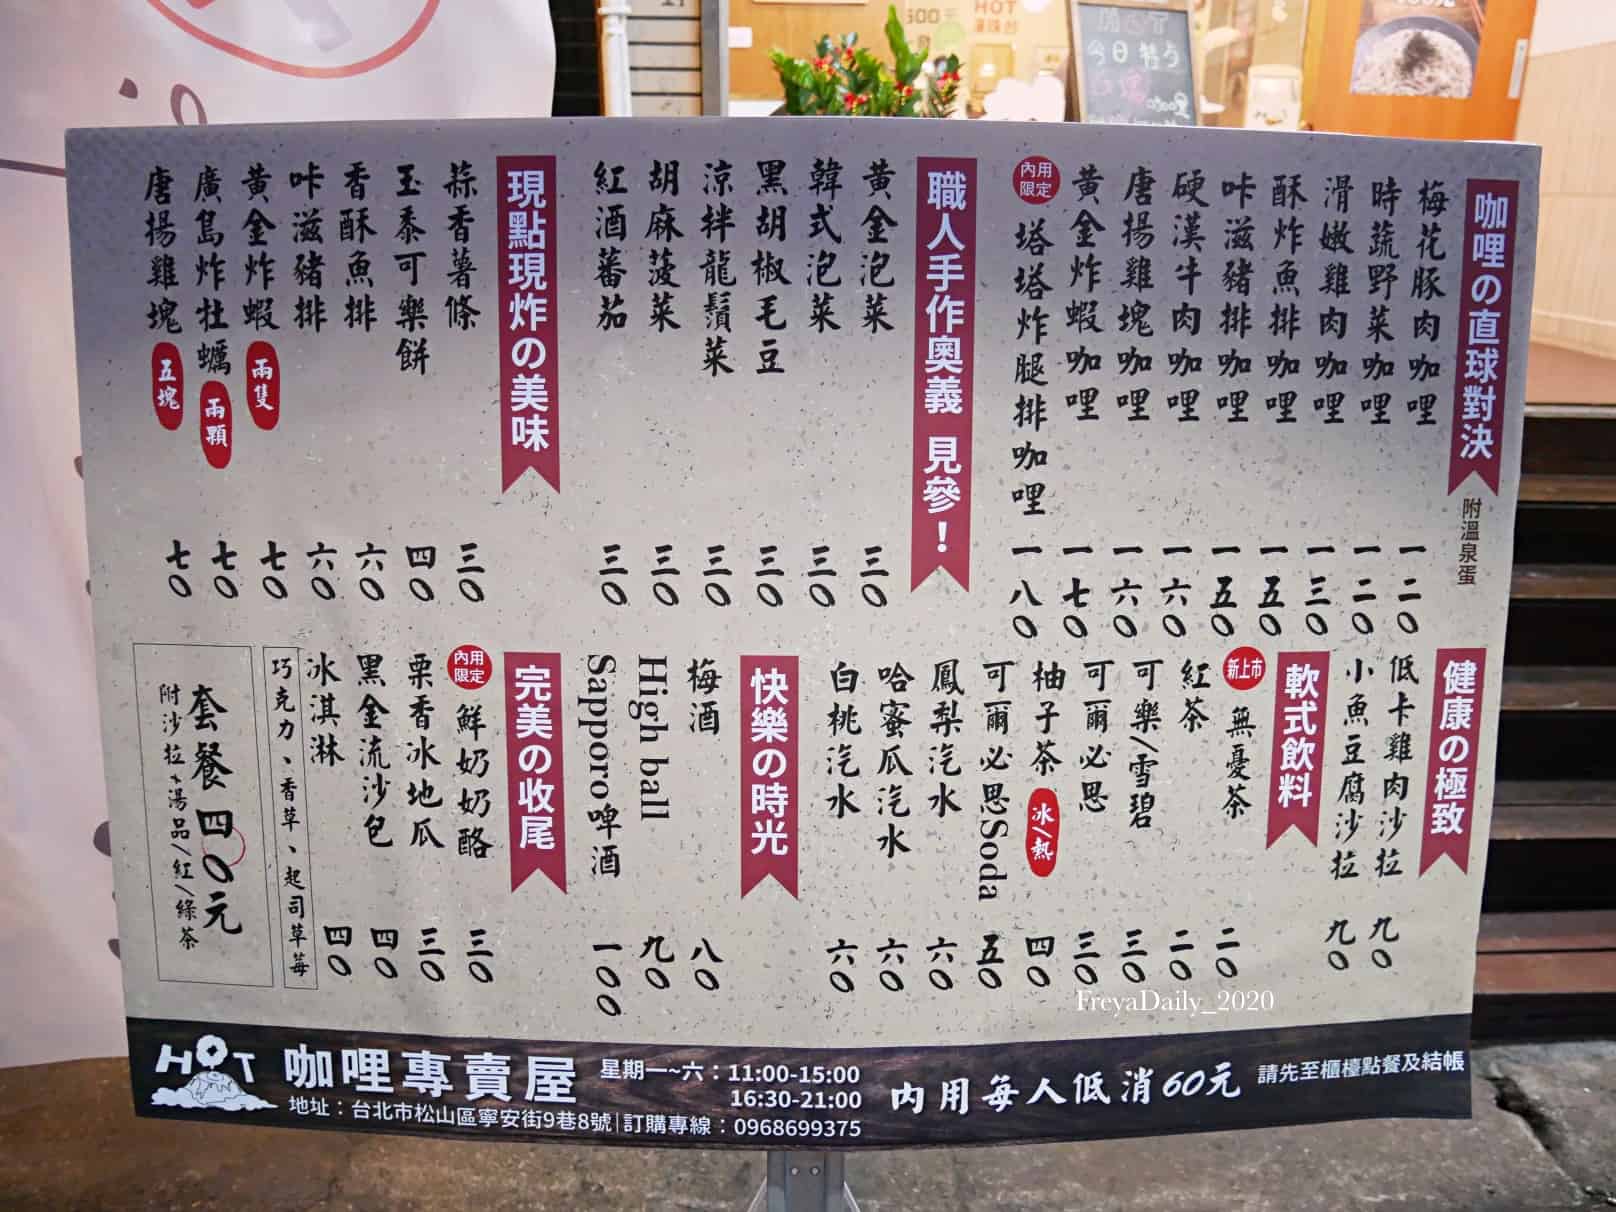 咖哩の直球對決
附溫泉蛋
梅花豚肉咖哩 一二0
時蔬野菜咖哩 一二0
滑嫩雞肉咖哩 一三0
酥炸魚排咖哩 一五0
咔滋豬排咖哩 一五0
硬漢牛肉咖哩 一六0
唐揚雞塊咖哩 一六0
黃金炸蝦咖哩 一七0
內用限定 塔塔炸腿排咖哩 一八0
職人手作奧義 見參！
黃金泡菜 三0
韓式泡菜 三0
黑胡椒毛豆 三0
涼拌龍鬚菜 三0
胡麻菠菜 三0
紅酒蕃茄 三0
現點現炸の美味
蒜香薯條 三0
玉黍可樂餅 四0
香酥魚排 六0
咔滋豬排 六0
黃金炸蝦 兩隻 七0
廣島炸牡蠣 兩顆 七0
唐揚雞塊 五塊 七0
健康の極致
低卡雞肉沙拉 九0
小魚豆腐沙拉 九0
軟式飲料
新上市 無憂茶 二0
紅茶 二0
可樂/雪碧 三0
可爾必思 三0
柚子茶 冰/熱 四0
可爾必思Soda 五0
鳳梨汽水 六0
哈蜜瓜汽水 六0
白桃汽水 六0
快樂の時光
梅酒 八0
High ball 九0
Sapporo啤酒 一00
完美の收尾
內用限定 鮮奶奶酪 三0
栗香冰地瓜 三0
黑金流沙包 四0
冰淇淋 四0
巧克力、香草、起司草莓
套餐四0元
附沙拉+湯品/紅/綠茶
HOT 咖哩專賣屋
星期一~六：11:00-15:00
16:30-21:00
地址：台北市松山區寧安街9巷8號|訂購專線：0968699375
內用每人低消60元
請先至櫃檯點餐及結帳
FreyaDaily_2020
HOT
今日特
500元
HOT